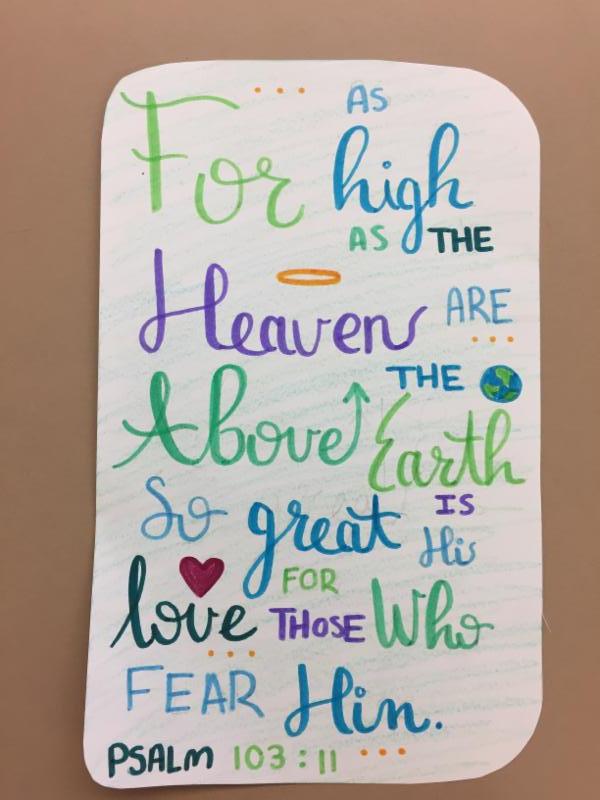 ... AS
For high
AS THE
Heavens ARE
...
THE
Above Earth
IS
So great His
love FOR
THOSE Who
...
FEAR Hin.
PSALM 103:11 ...